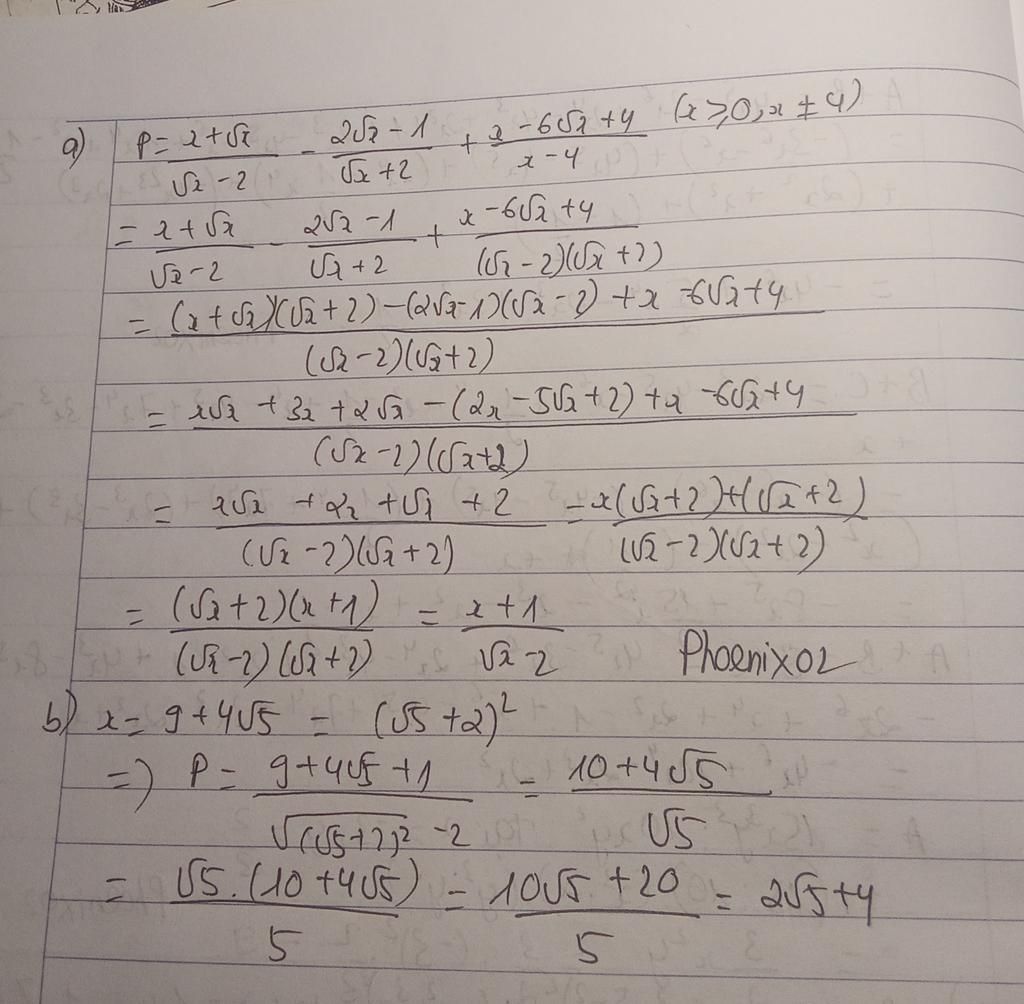 a) P = x+√x / √x-2 - 2√x-1 / √x+2 + x-6√x+4 / x-4 (x ≥ 0, x ≠ 4)
= x+√x / √x-2 - 2√x-1 / √x+2 + x-6√x+4 / (√x-2)(√x+2)
= (x+√x)(√x+2)-(2√x-1)(√x-2)+x-6√x+4 / (√x-2)(√x+2)
= x√x+3x+2√x-(2x-5√x+2)+x-6√x+4 / (√x-2)(√x+2)
= x√x+2x+√x+2 / (√x-2)(√x+2) = x(√x+2)+(√x+2) / (√x-2)(√x+2)
= (√x+2)(x+1) / (√x-2)(√x+2) = x+1 / √x-2 Phoenix02
b) x = 9+4√5 = (√5+2)²
=> P = 9+4√5+1 / √(√5+2)² -2 = 10+4√5 / √5
= √5.(10+4√5) / 5 = 10√5+20 / 5 = 2√5+4